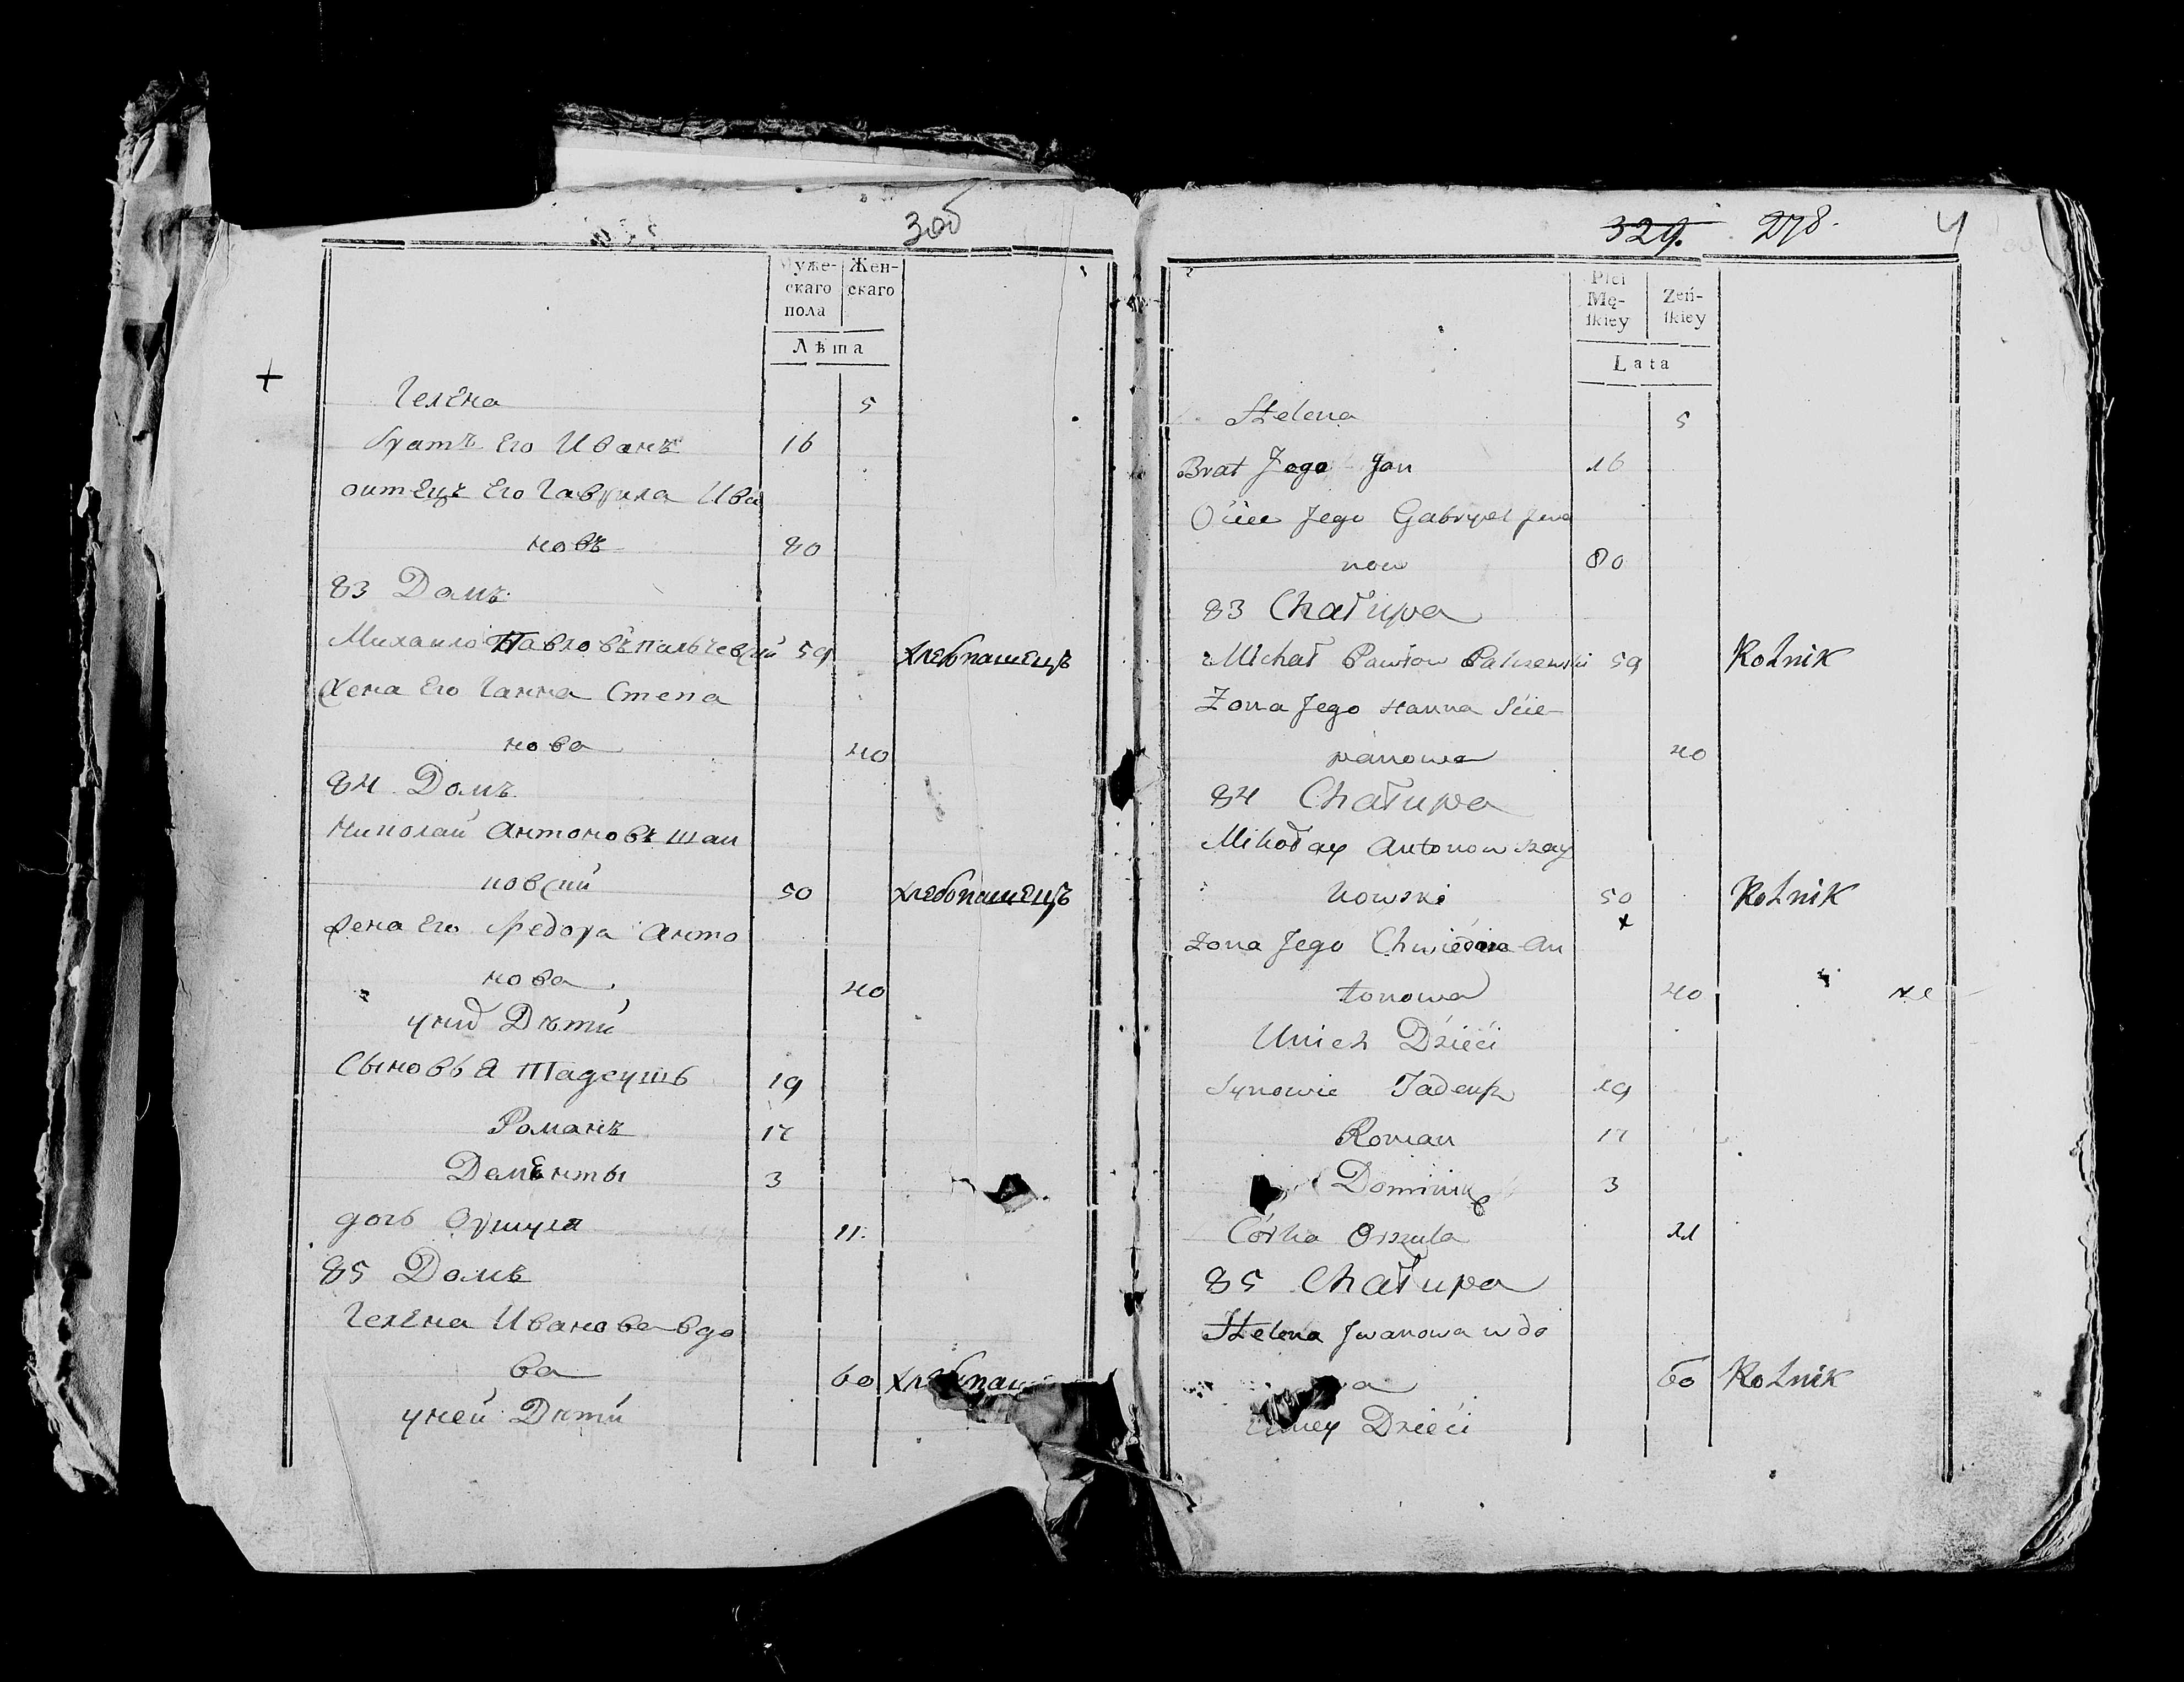 306
Мужескаго пола
Женскаго
Лѣта
Гелена 5
братъ Его Иванъ 16
оитецъ Его Гаврила Ива
новъ 80
83 Домъ
Михаило Павловъ пальчевский 59 хлебпашецъ
Жена Его Ганна Степа
нова 40
84 Домъ
Николай Антоновъ шаи
новский 50 хлебпашецъ
Жена Его Федора Анто
нова 40
уних Дѣти
Сыновья Тадеушъ 19
Романъ 17
Дементы 3
дочь Оршуля 11
85 Домъ
Гелена Иванова вдо
ва 60
уней Дѣти
278. 4
Płci Męſkiey
Żeńſkiey
Lata
Helena 5
Brat Jego Jan 16
Ociec Jego Gabryel Jwa
now 80
83 Chałupa
Michał Pawłow Palczewski 59 Rolnik
Żona Jego Hanna Scie-
panowa 40
84 Chałupa
Mikołay Antonow szay
nowski 50 Rolnik
żona Jego An
tonowa 40
Unich Dzieci
Synowie Tadeusz 19
Roman 17
Dominik 3
Córka Orszula 11
85 Chałupa
Helena Jwanowa wdo
wa 60 Rolnik
Uney Dzieci